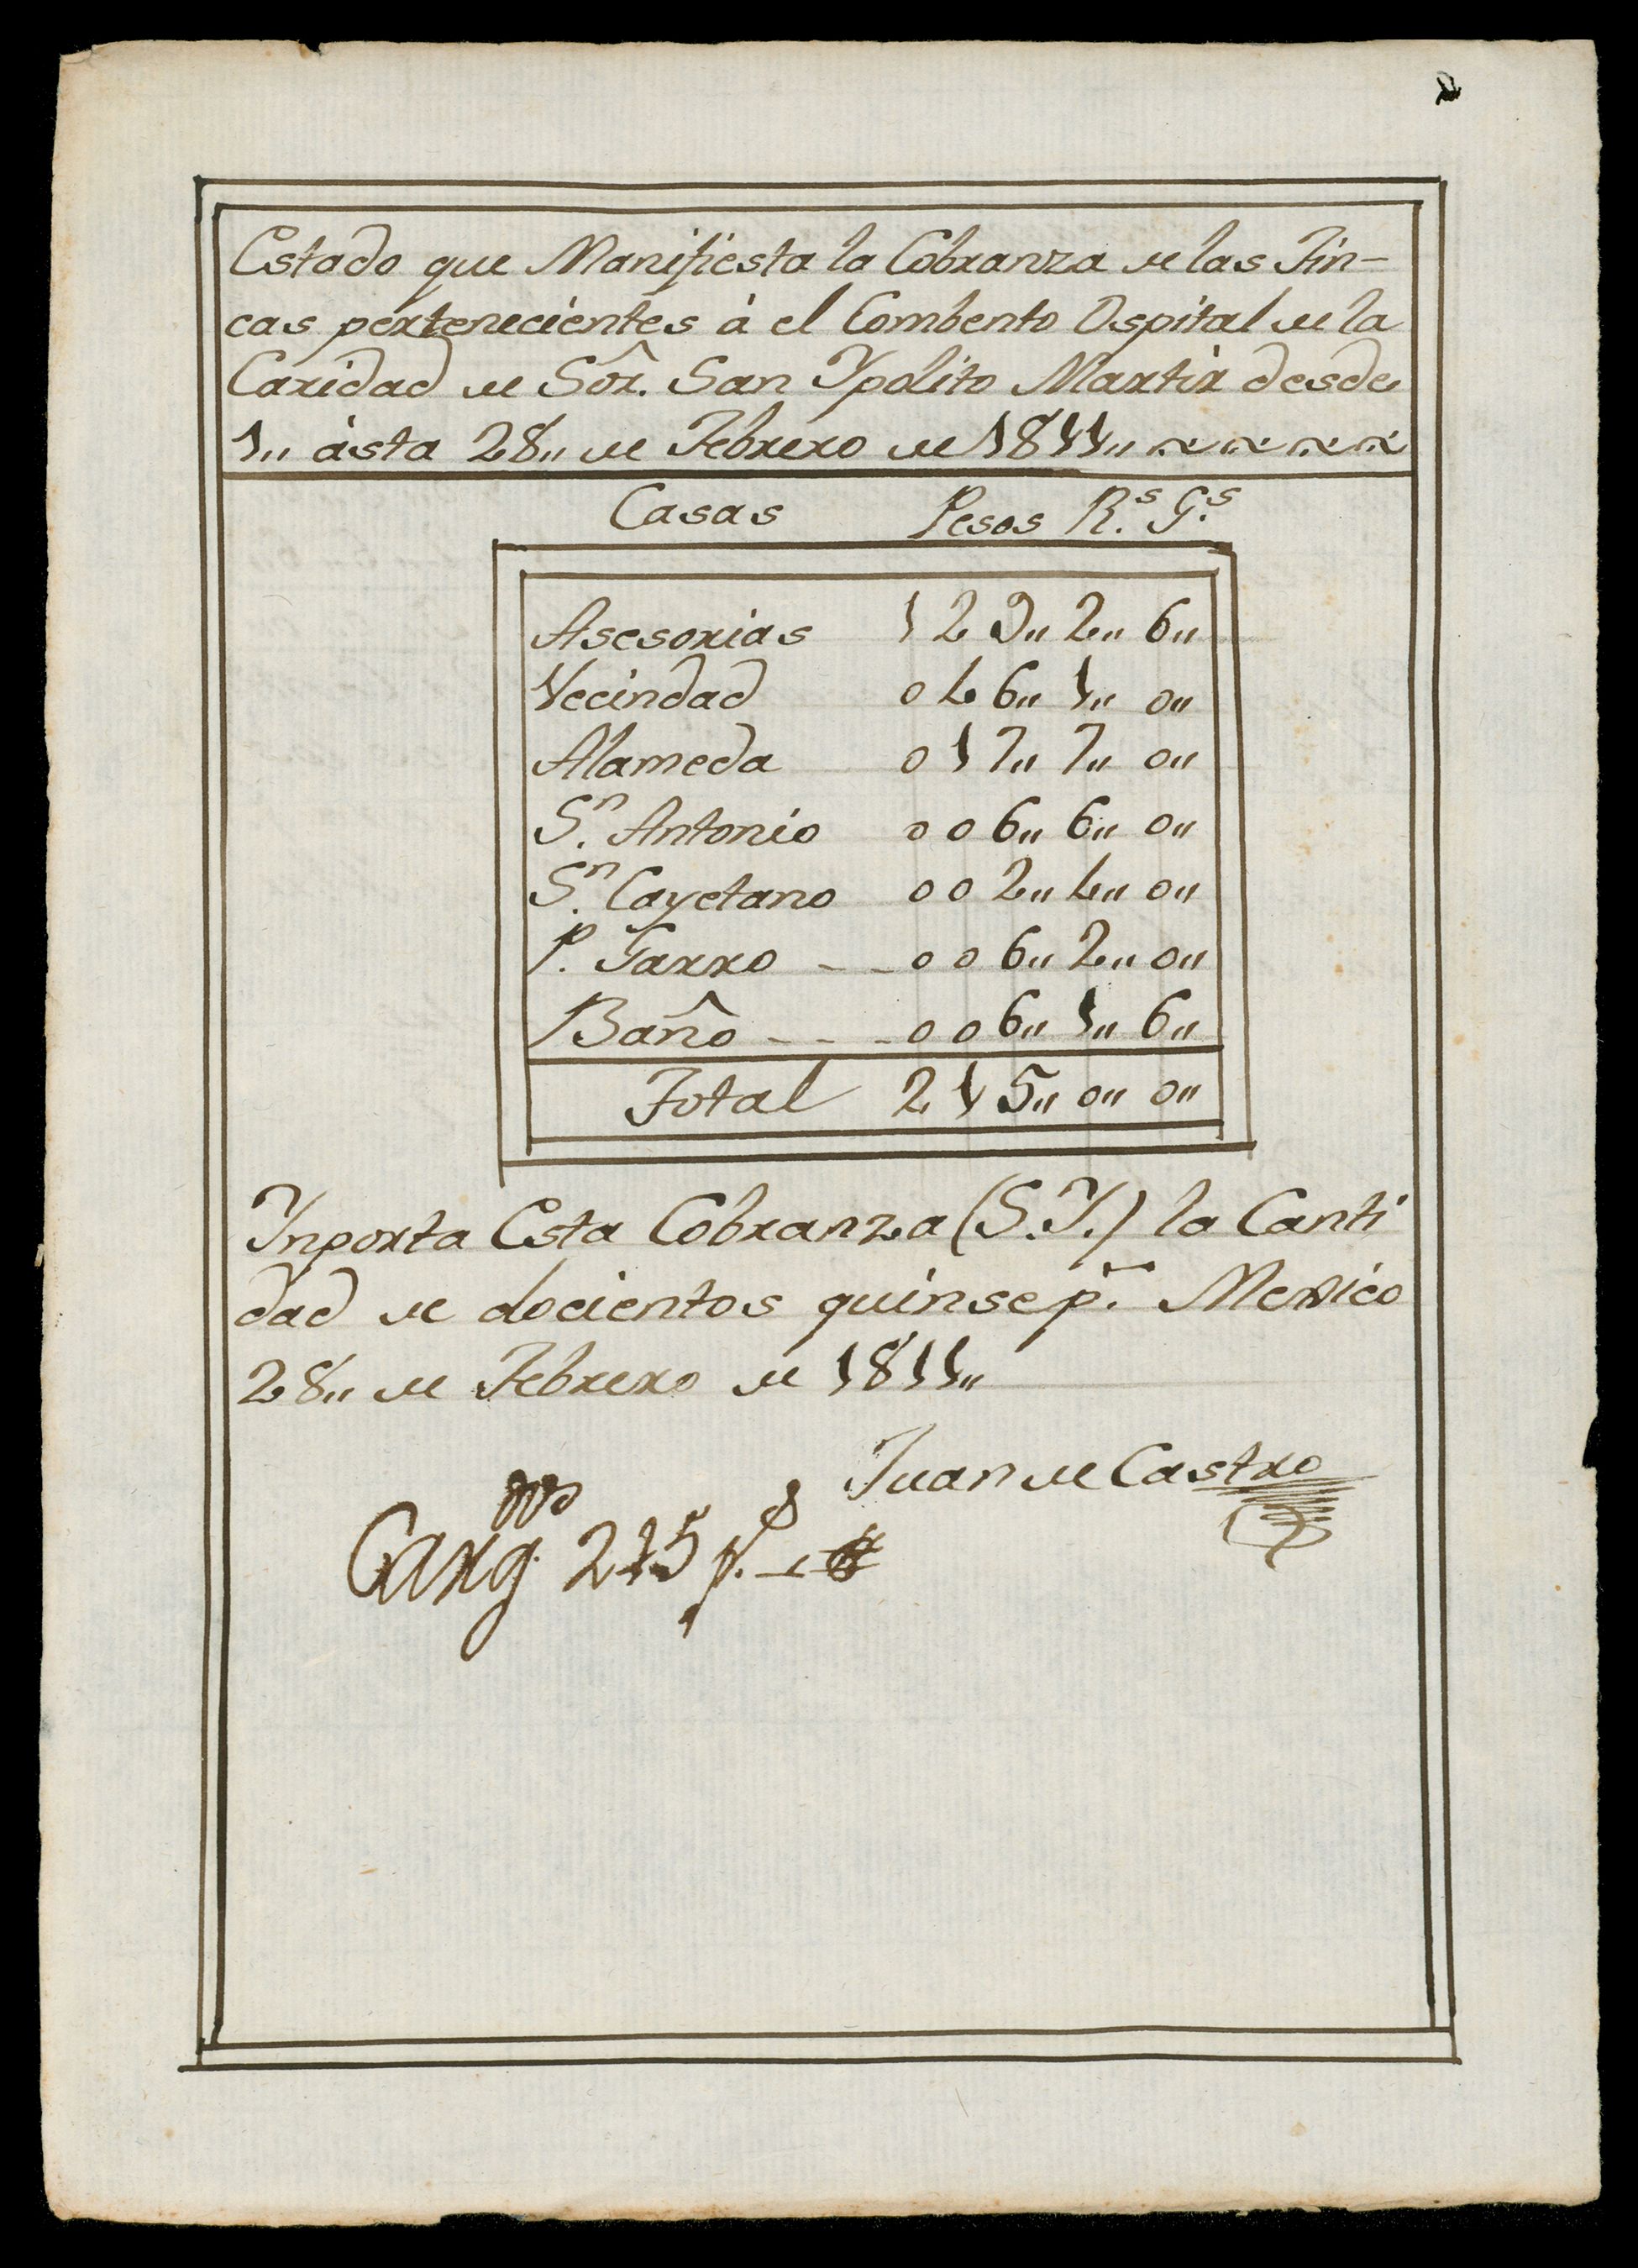 Estado que Manifiesta la Cobranza de las Fin-
cas pertenecientes á el Combento Ospital de la
Caridad de Sôr. San Ypolito Martir desde
1,, ásta 28,, de Febrero de 1811,,
Casas Pesos R.ˢ G.ˢ
Asesorias 129,, 2,, 6,,
Vecindad 046,, 1,, 0,,
Alameda 017,, 7,, 0,,
S.ⁿ Antonio 006,, 6,, 0,,
S.ⁿ Cayetano 002,, 4,, 0,,
P. Garro - - 006,, 2,, 0,,
Baño - - - 006,, 1,, 6,,
Total 215,, 0,, 0,,
Ynporta Esta Cobranza (S.Y.) la Canti
dad de docientos quinse p.ˢ Mexico
28,, de Febrero de 1811,,
Juan de Castro
215 p.ˢ